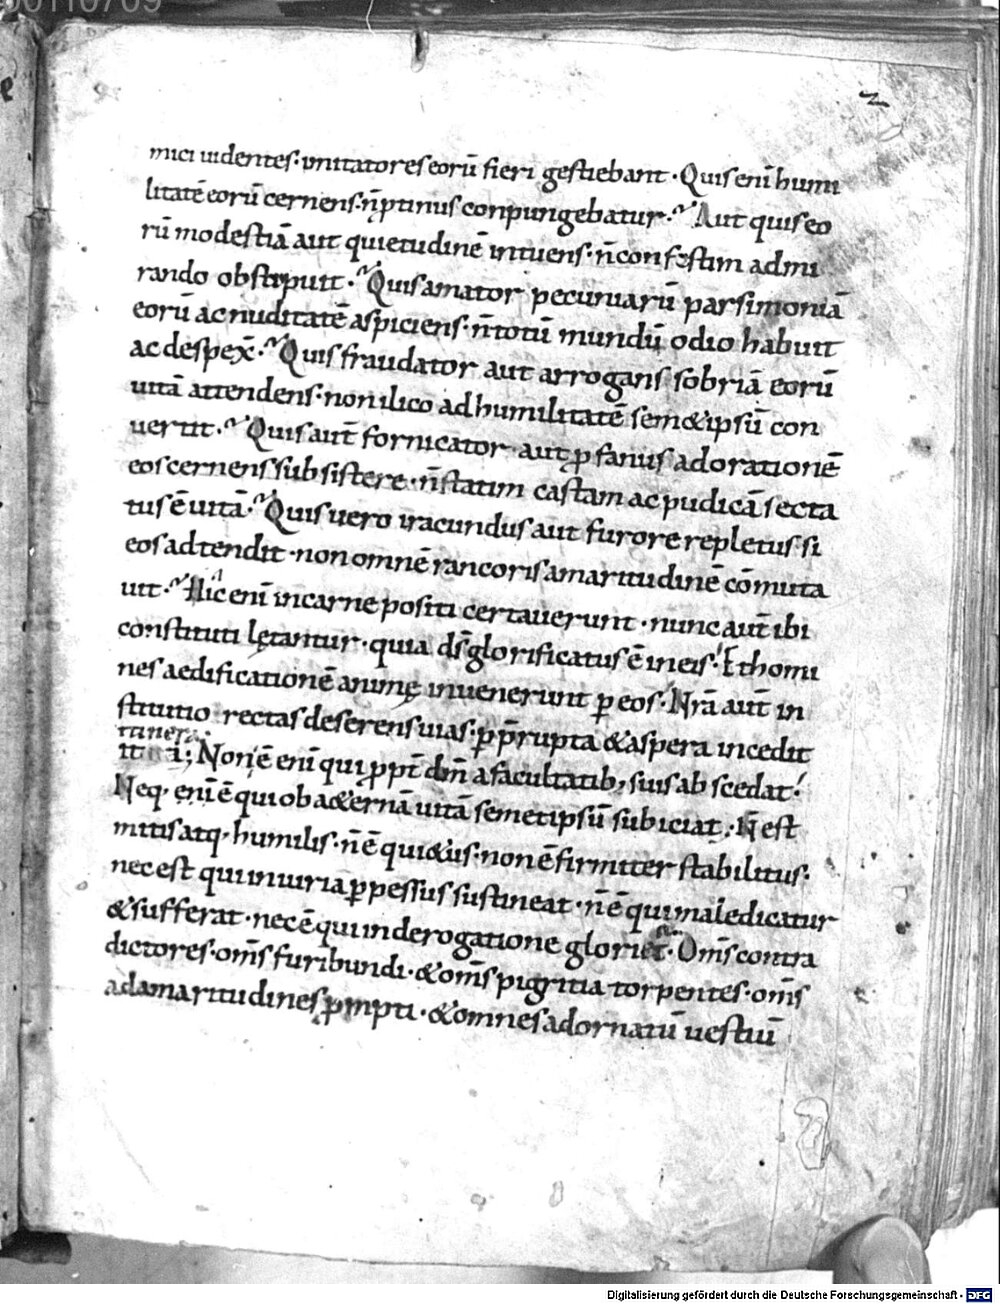 2
mici uidentes· imitatores eorū fieri gestiebant· Quis enī humi
litatē eorū cernens· n̄ ptinus conpungebatur· Aut quis eo
rū modestiā aut quietudinē intuens· n̄ confestim admi
rando obstipuit· Quis amator pecuniarū parsimoniā
eorū ac nuditatē aspiciens· n̄ totū mundū odio habuit
ac despex̄· Quis fraudator aut arrogans sobriā eorū
uitā attendens· non ilico ad humilitatē sem& ipsū con
uertit· Quis aut̄ fornicator aut ꝓfanus adorationē
eos cernens subsistere· n̄ statim castam ac pudicā secta
tus ē uitā· Quis uero iracundus aut furore repletus si
eos adtendit· non omnē rancoris amaritudinē cōmuta
uit· Hic enī in carne positi certauerunt· nunc aut̄ ibi
constituti lętantur· quia ds̄ glorificatus ē in eis· Et homi
nes aedificationē animę inuenerunt ꝑ eos· Nrā aut̄ in
stitutio rectas deserens uias· ꝑ p̄rupta & aspera incedit
itinera; Non ē enī qui ꝓpt̄ dm̄ a facultatib; suis abscedat·
Neq· enī ē qui ob aeternā uitā semetipsū subiciat· N̄ est
mitis atq· humilis· n̄ ē qui&us· non ē firmiter stabilitus·
nec est qui iniuriā ꝑpessus sustineat· n̄ ē qui maledicatur
& sufferat· nec ē qui in derogatione glorietur· Om̄s contra
dictores· om̄s furibundi· & om̄s pigritia torpentes· om̄s
ad amaritudines ꝓmpti· & omnes ad ornatū uestiū
Digitalisierung gefördert durch die Deutsche Forschungsgemeinschaft - DFG